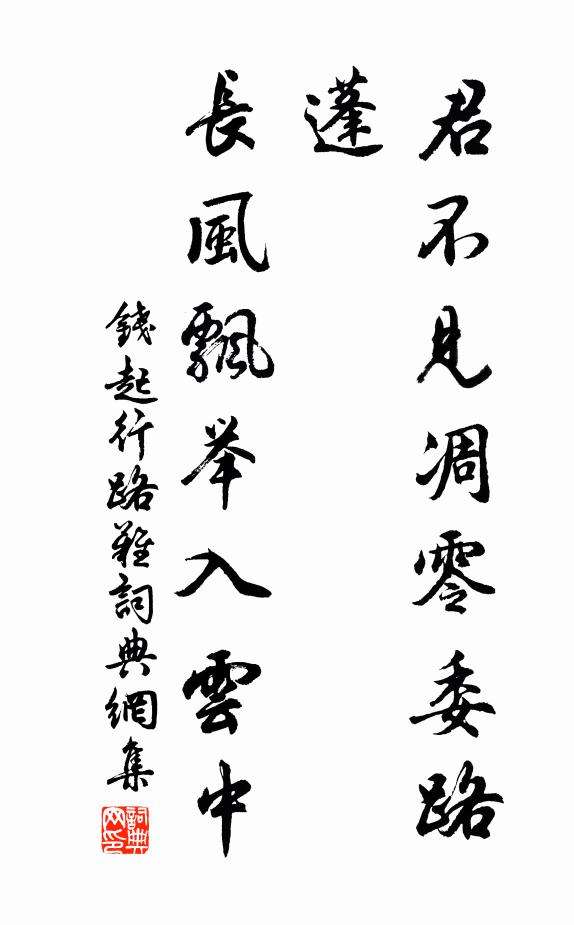 君不見凋零委路
蓬
長風飄举入雲中
錢起行路難詞典網集
詞典
网印